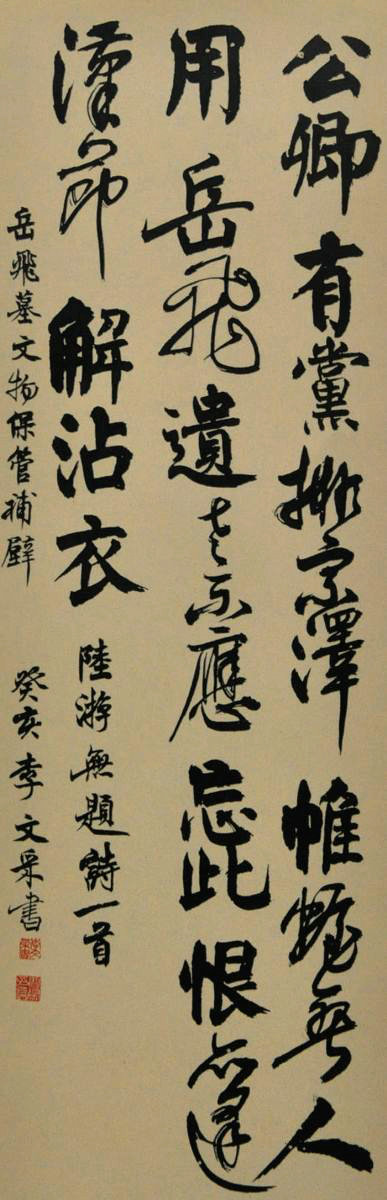 公卿有黨排宗澤帷幄無人
用岳飛遺老不應忘此恨亦逢
漢節解沾衣
陸游無題詩一首
岳飛墓文物保管補壁
癸亥李文采書